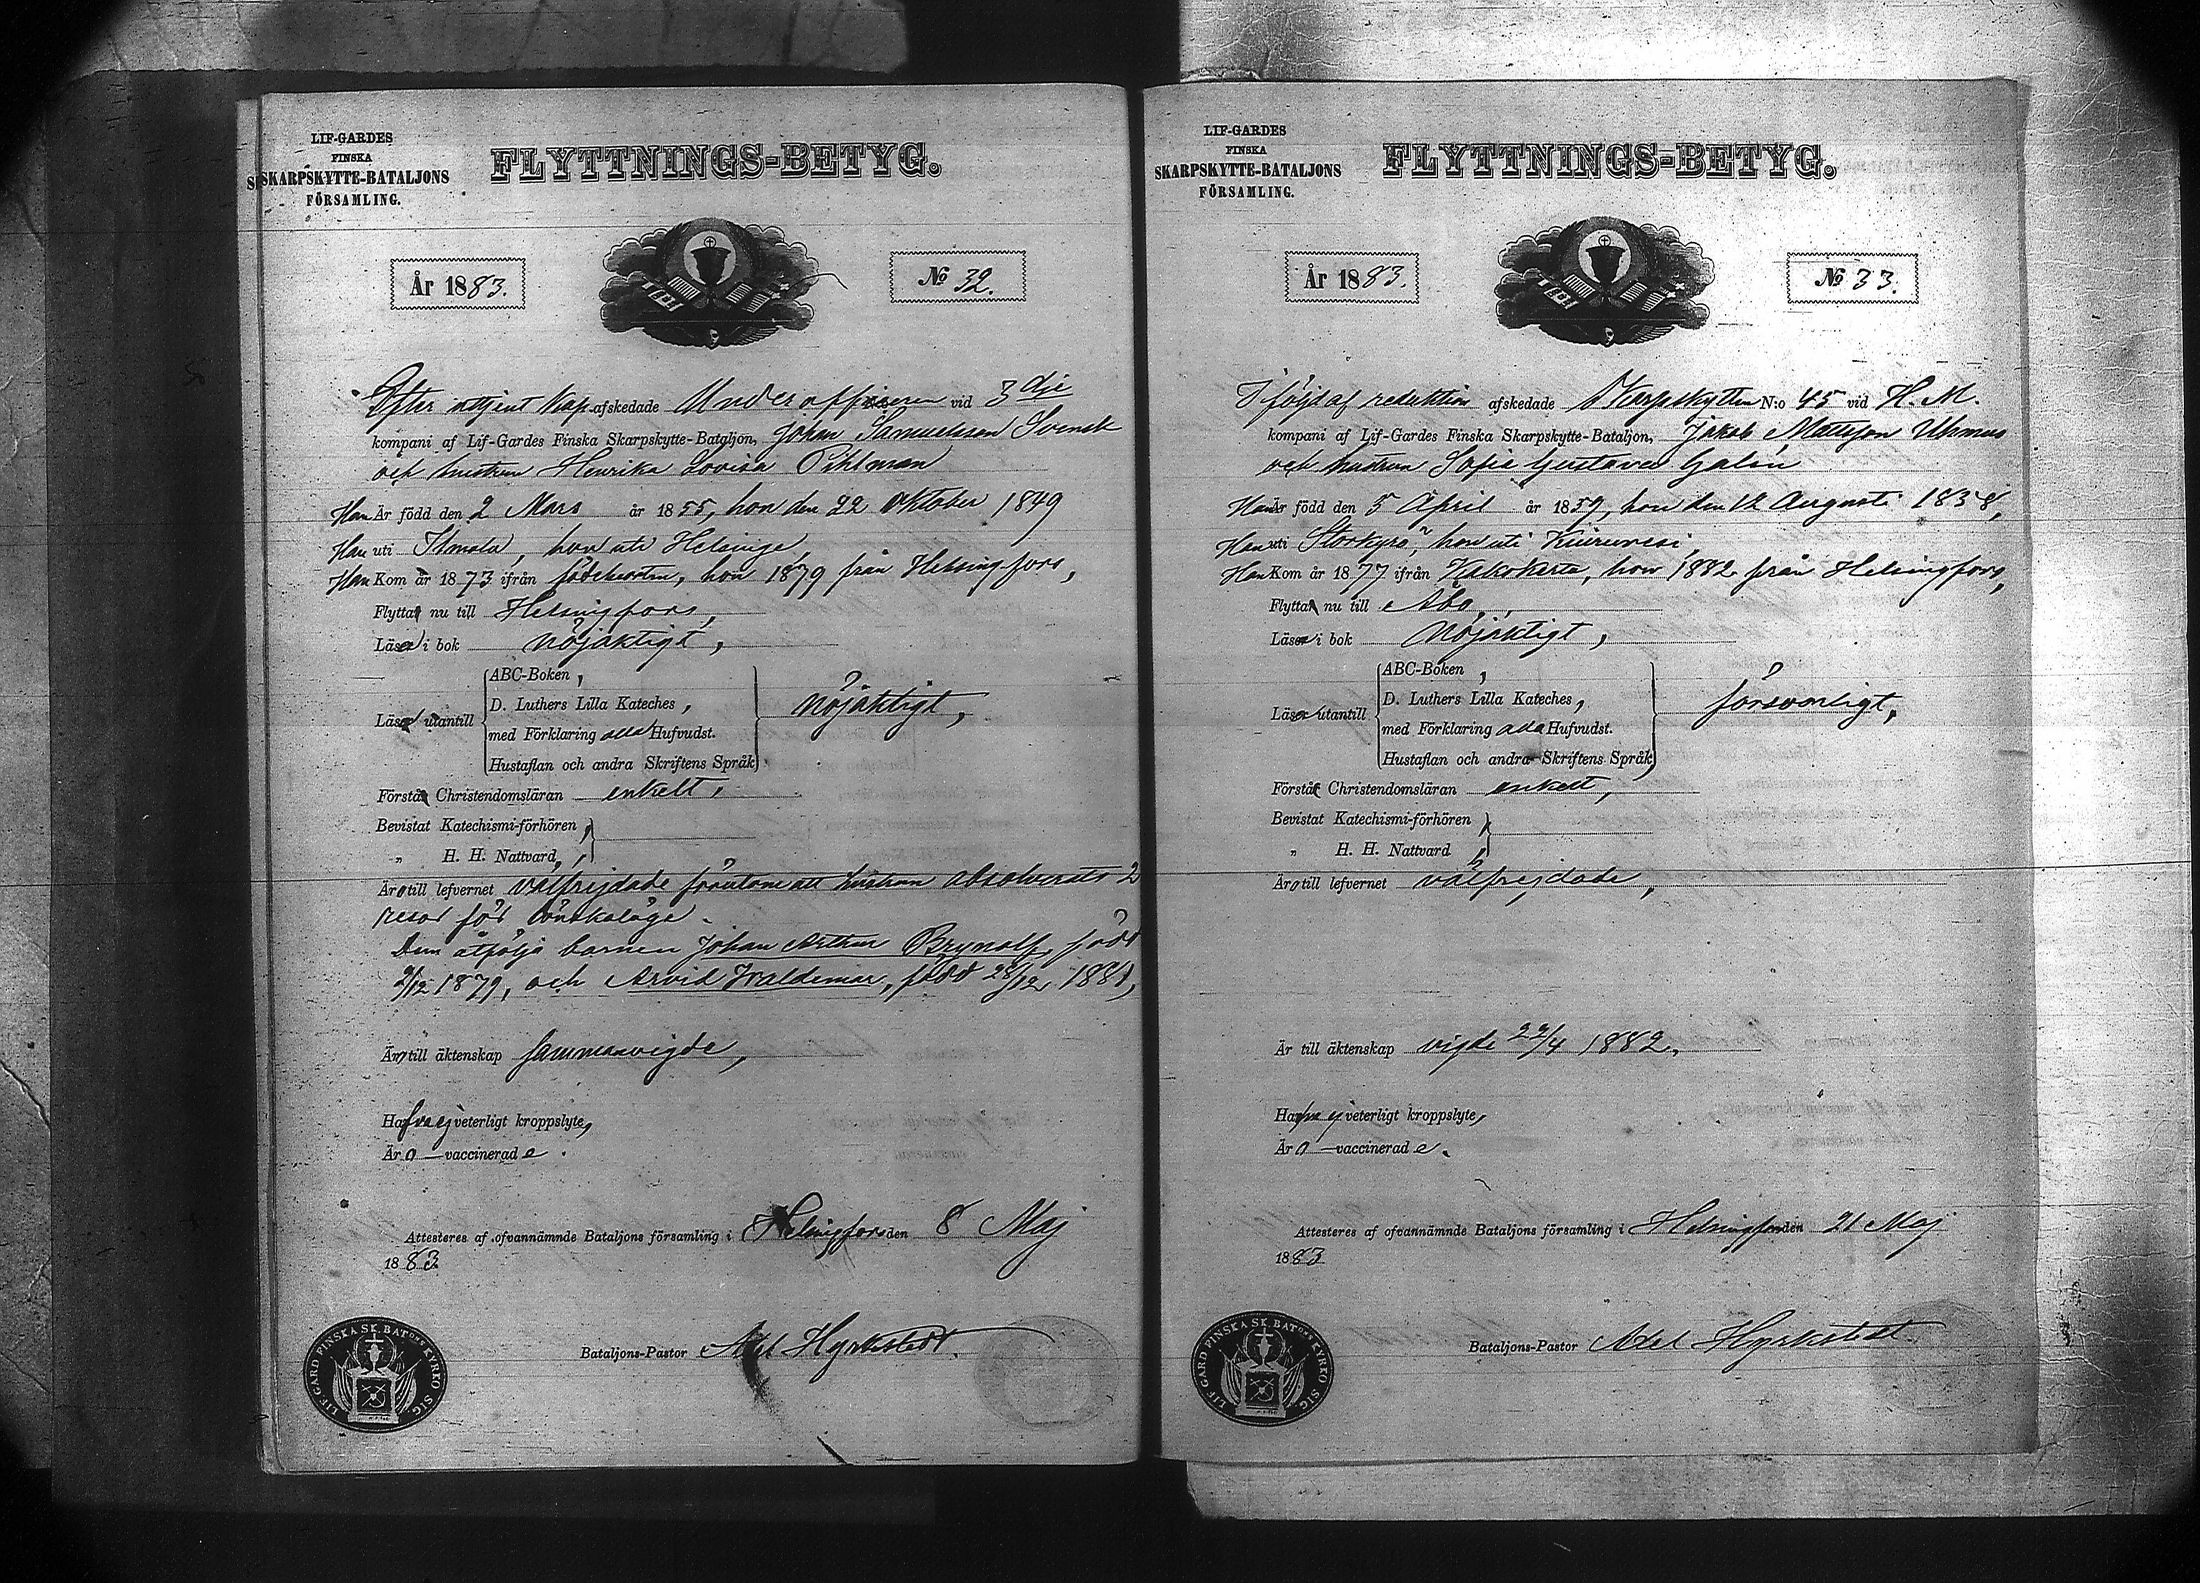 LIF-GARDES
FINSKA
SKARPSKYTTE-BATALJONS
FÖRSAMLING.
FLYTTNINGS-BETYG.
År 1883.
No 32.
Efter uttjent kap. afskedade Underofficeren vid 3dje
kompani af Lif-Gardes Finska Skarpskytte-Bataljon, Johan Samuelsson Svensk
och hustrun Henrika Lovisa Pihlman
Han Är född den 2 Mars år 1855, hon den 22 Oktober 1849
Han uti Itmola, hon uti Helsinge,
Han Kom år 1873 ifrån födelseorten, hon 1879 från Helsingfors,
Flytta nu till Helsingfors,
Läsa i bok nöjaktigt,
Läsa utantill
ABC-Boken,
D. Luthers Lilla Kateches,
med Förklaring alla Hufvudst.
Hustaflan och andra Skriftens Språk
nöjaktigt,
Förstå Christendomsläran enkelt,
Bevistat Katechismi-förhören,
„ H. H. Nattvard,
Äro till lefvernet välfrejdade förutom att hustrun absolverats 2
resor för lönskaläge.
Dem åtfölja barnen Johan Arthur Brynolf, född
2/12 1879, och Arvid Waldemar, född 28/12 1881,
Äro till äktenskap sammanvigde,
Hafva ej veterligt kroppslyte,
Äro vaccinerade.
Attesteres af ofvannämnde Bataljons församling i Helsingfors den 8 Maj
1883
Bataljons-Pastor Axel Hyrkstedt.
LIF. GARD FINSKA SK. BATONS KYRKO SIG.
LIF-GARDES
FINSKA
SKARPSKYTTE-BATALJONS
FÖRSAMLING.
FLYTTNINGS-BETYG.
År 1883.
No 33.
I följd af reduktion afskedade Skarpskytten N:o 45 vid H. M.
kompani af Lif-Gardes Finska Skarpskytte-Bataljon, Jakob Mattsson Uhmus
och hustrun Sofia Gustava Galén
Han Är född den 5 April år 1859, hon den 12 Augusti 1858,
Han uti Storkyrö, hon uti Kiuruvesi,
Han Kom år 1877 ifrån födelseorten, hon 1882 från Helsingfors,
Flytta nu till Åbo,
Läsa i bok nöjaktigt,
Läsa utantill
ABC-Boken,
D. Luthers Lilla Kateches,
med Förklaring alla Hufvudst.
Hustaflan och andra Skriftens Språk
försvarligt,
Förstå Christendomsläran enkelt,
Bevistat Katechismi-förhören,
„ H. H. Nattvard,
Äro till lefvernet välfrejdade,
Är till äktenskap vigde 22/4 1882.
Hafva ej veterligt kroppslyte,
Äro vaccinerade.
Attesteres af ofvannämnde Bataljons församling i Helsingfors den 21 Maj
1883
Bataljons-Pastor Axel Hyrkstedt.
LIF. GARD FINSKA SK. BATONS KYRKO SIG.